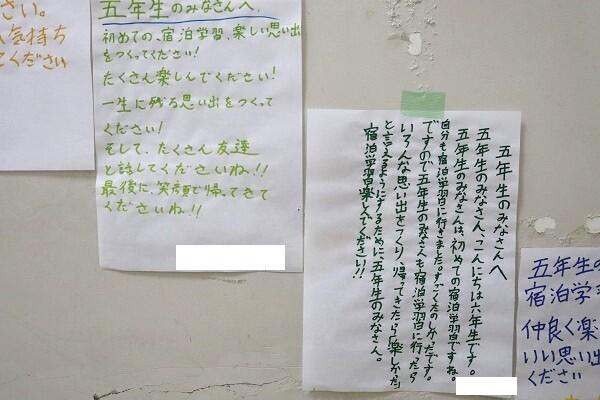 さい。
気持ち
てください
五年生のみなさんへ
初めての、宿泊学習、楽しい思い出
をつくってください!
たくさん楽しんでください!
一生に残る思い出をつくって
ください!
そして、たくさん友達
と話してくださいね!!
最後に、笑顔で帰ってきて
くださいね!!
五年生のみなさんへ
五年生のみなさん、こんにちは六年生です。
五年生のみなさんは、初めての宿泊学習ですね。
自分も宿泊学習に行きました。すごくたのしかたです。
ですので五年生のみなさんも宿泊学習に行ったら
いろんな思い出をつくり、帰ってきたら「楽しかた」
と言えるようにするために、五年生のみなさん。
宿泊学習楽しんでください!!
五年生の
宿泊学
仲良く楽
いい思い出
ください